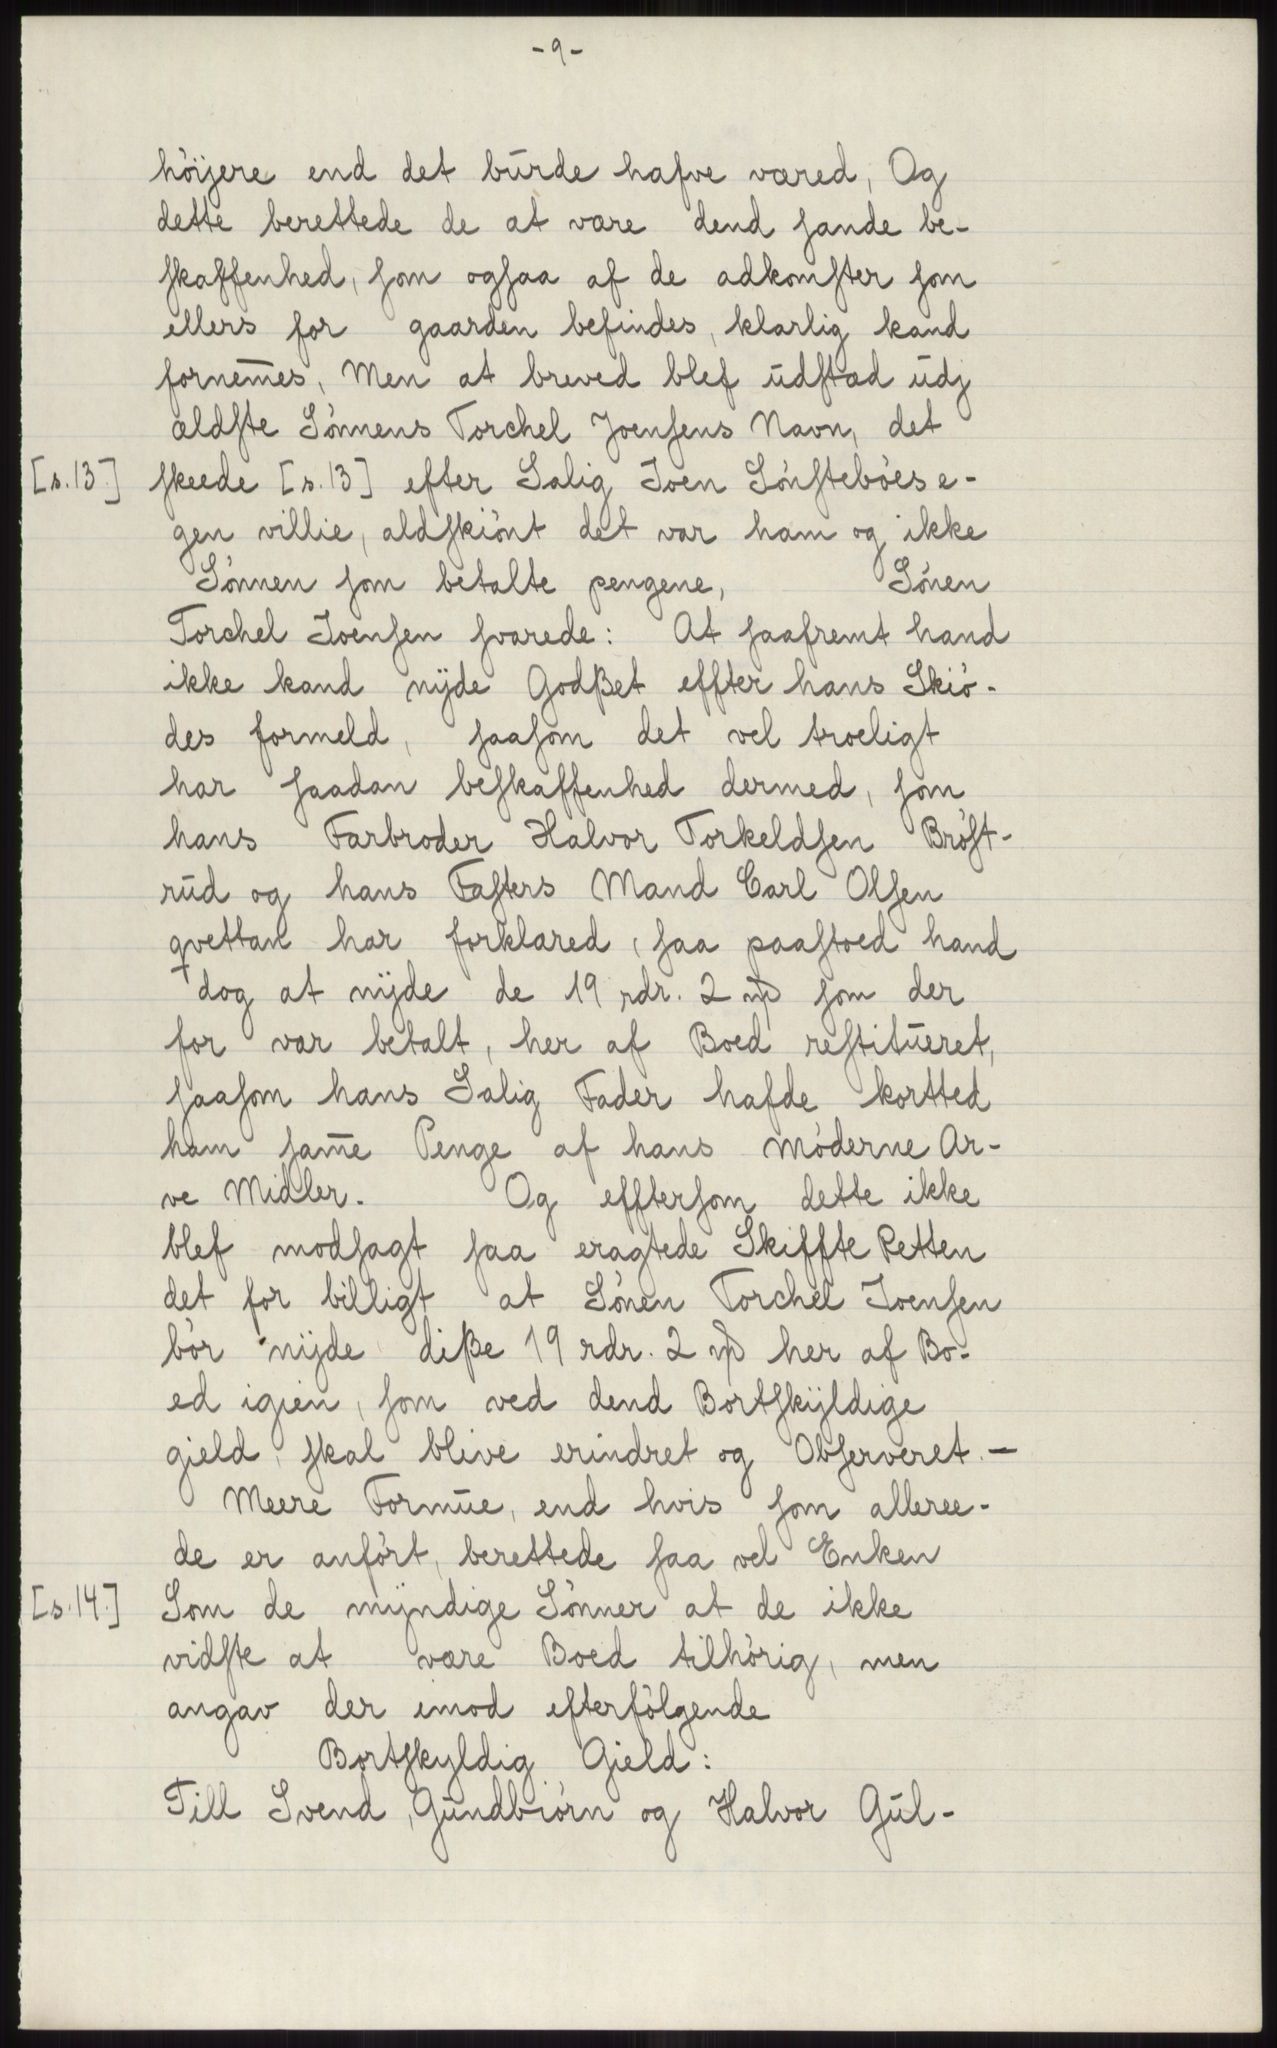 -9-
höijere end det burde hafve været, Og
dette berettede de at være dend sande be-
skaffenhed, som ogsaa af de adkomster som
ellers for gaarden befindes, klarlig kand
fornem̅es, Men at breved blef udstæd udj
ældste Sönnens Torchel Joensens Navn, det
[s.13.] skeede [s.13] efter Salig Joen Sönsteböes e-
gen villie, aldskiönt det var ham og ikke
Sönnen som betalte pengene, Sönen
Torchel Joensen svarede: At saafremt hand
ikke kand nijde Godßet effter hans Skiö-
des formeld, saasom det vel troeligt
har saadan beskaffenhed dermed, som
hans Farbroder Halvor Torkeldsen Bröst-
rud og hans Fasters Mand Carl Olsen
qvettan har forklared, saa paastoed hand
dog at nijde de 19 rdr. 2 mƺ som der
for var betalt, her af Boed restitueret,
saasom hans Salig Fader hafde kortted
ham sam̅e Penge af hans möderne Ar-
ve Midler. Og efftersom dette ikke
blef modsagt saa eragtede Skiffte Retten
det for billigt at Sönen Torchel Joensen
bör nijde diße 19 rdr. 2 mƺ her af Bo-
ed igien, som ved dend Bortskyldige
gield skal blive erindret og Observeret. —
Meere Formue, end hvis som alleree-
de er anfört, berettede saa vel Enken
[s.14.] Som de myndige Sönner at de ikke
vidste at være Boed tilhörig, men
angav der imod efterfölgende
Bortskyldig Gield:
Till Svend, Gundbiörn og Halvor Gul-